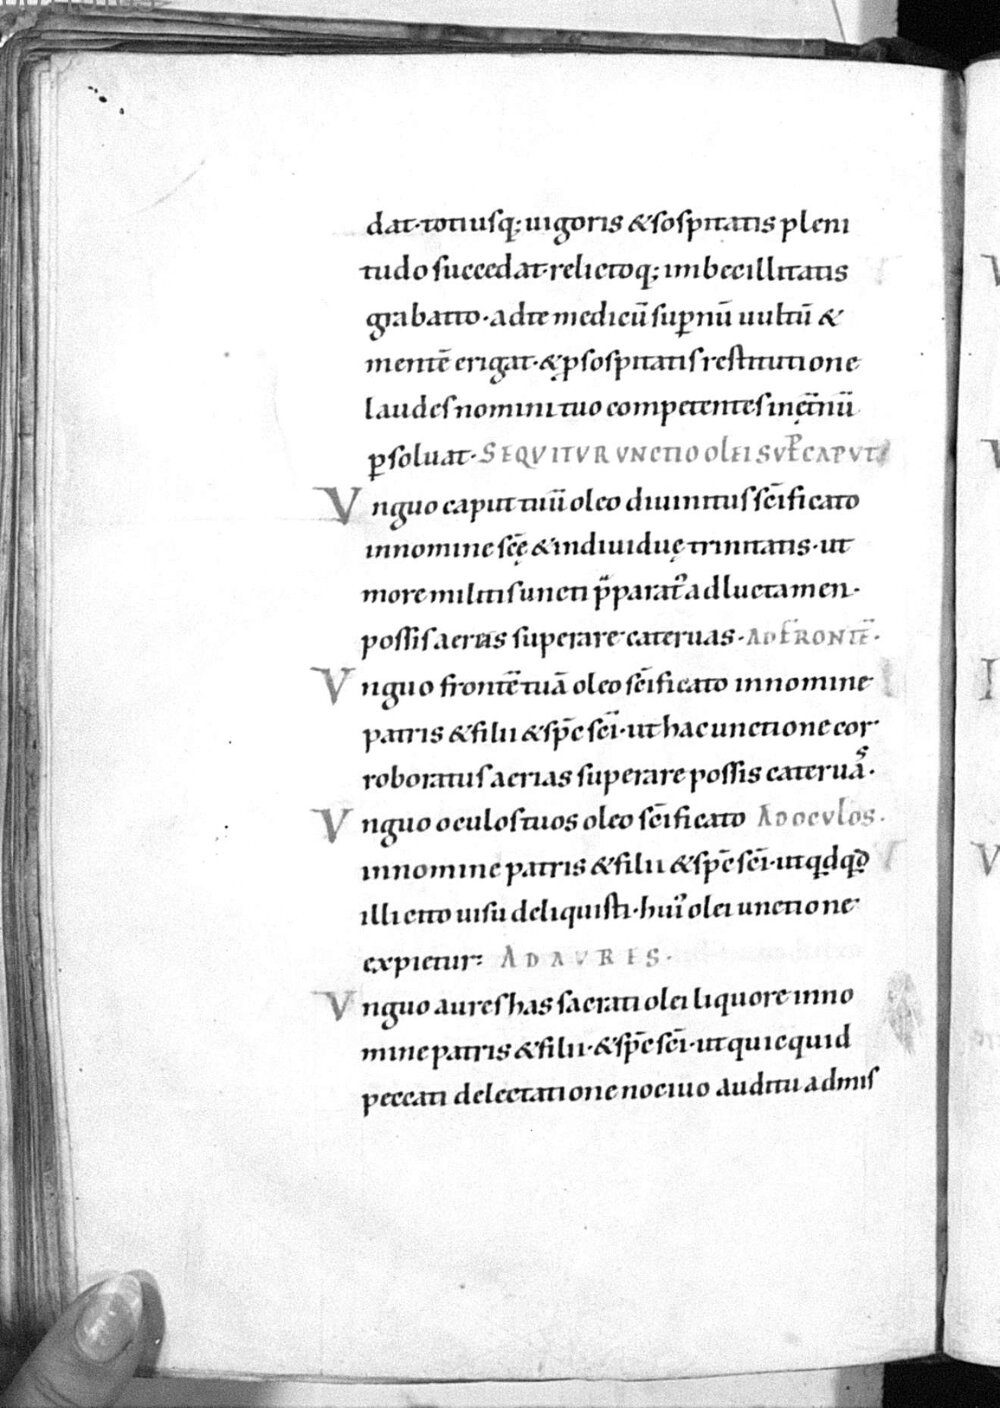 dat·totiusq; uigoris &sospitatis pleni
tudo succedat·relictoq; imbecillitatis
grabatto·adte medicū supnū uultū &
mentē erigat·&p sospitatis restitutione
laudes nomini tuo competentes inęt̄nū
psoluat· SEQVITVR VNCTIO OLEI SVP CAPVT
Vnguo caput tuū oleo diuinitus scīficato
innomine scę̄ &indiuiduę trinitatis·ut
more militis uncti p̄parat᾽ adluctamen·
possis aerias superare cateruas· AD FRONTĒ·
Vnguo frontē tuā oleo scīficato innomine
patris &filii &spc̄ scī·ut hac unctione cor
roboratus aerias superare possis cateruas·
Vnguo oculos tuos oleo scīficato AD OCVLOS·
innomine patris &filii &spc̄ scī·utqdqd
illicito uisu deliquisti·hui᾽ olei unctione
expietur: AD AVRES·
Vnguo aures has sacrati olei liquore inno
mine patris &filii·&spc̄ scī·utquicquid
peccati delectatione nociuo auditu admis